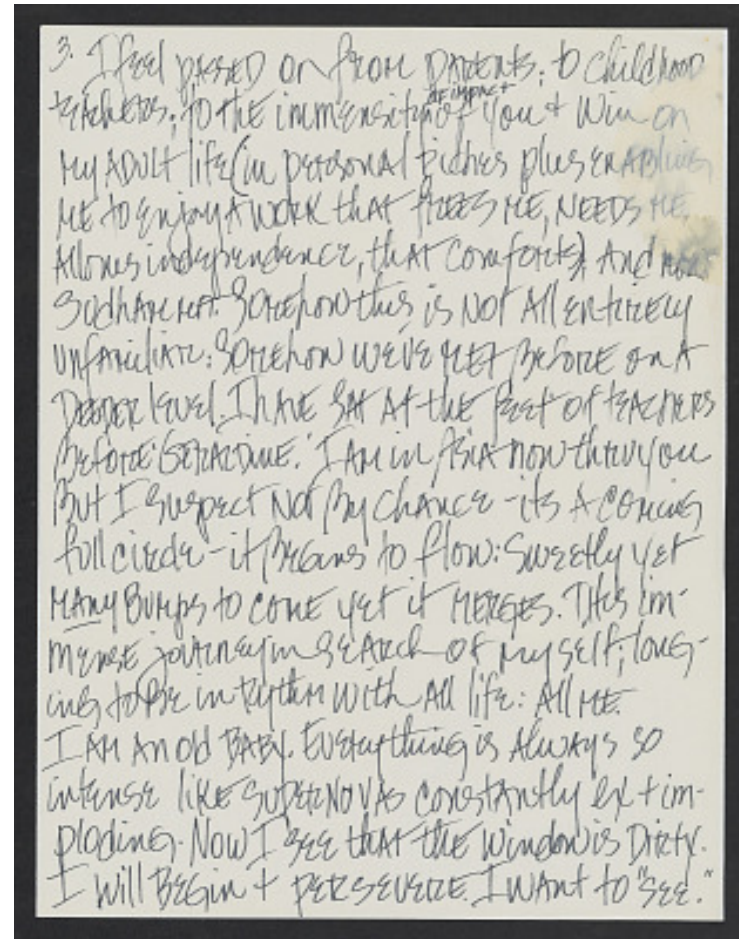 3. I feel passed on from parents; to childhood
teachers; to the immensity of impact of you + Win on
my adult life (in personal riches plus enabling
me to enjoy a work that frees me, needs me,
allows independence, that comforts) And now
Sudharmer. Somehow this is not all entirely
unfamiliar: somehow we've met before on a
deeper level. I have sat at the feet of teachers
before 'Geraldine.' I am in Asia now thru you
but I suspect not by chance - its a coming
full circle - it begins to flow: sweetly yet
many bumps to come yet it merges. This im-
mense journey in search of myself; long-
ing to be in rythm with all life: all me.
I am an old baby. Everything is always so
intense like supernovas constantly ex + im-
ploding. Now I see that the window is dirty.
I will begin + persevere. I want to "see."